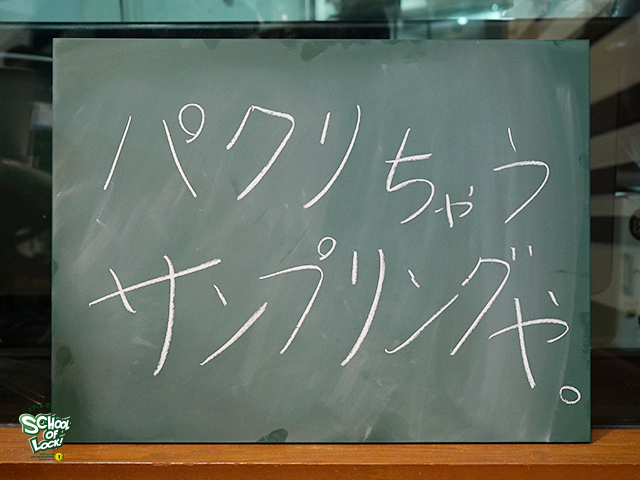 パクリちゃう
サンプリングや。
SCHOOL
OF
LOCK!